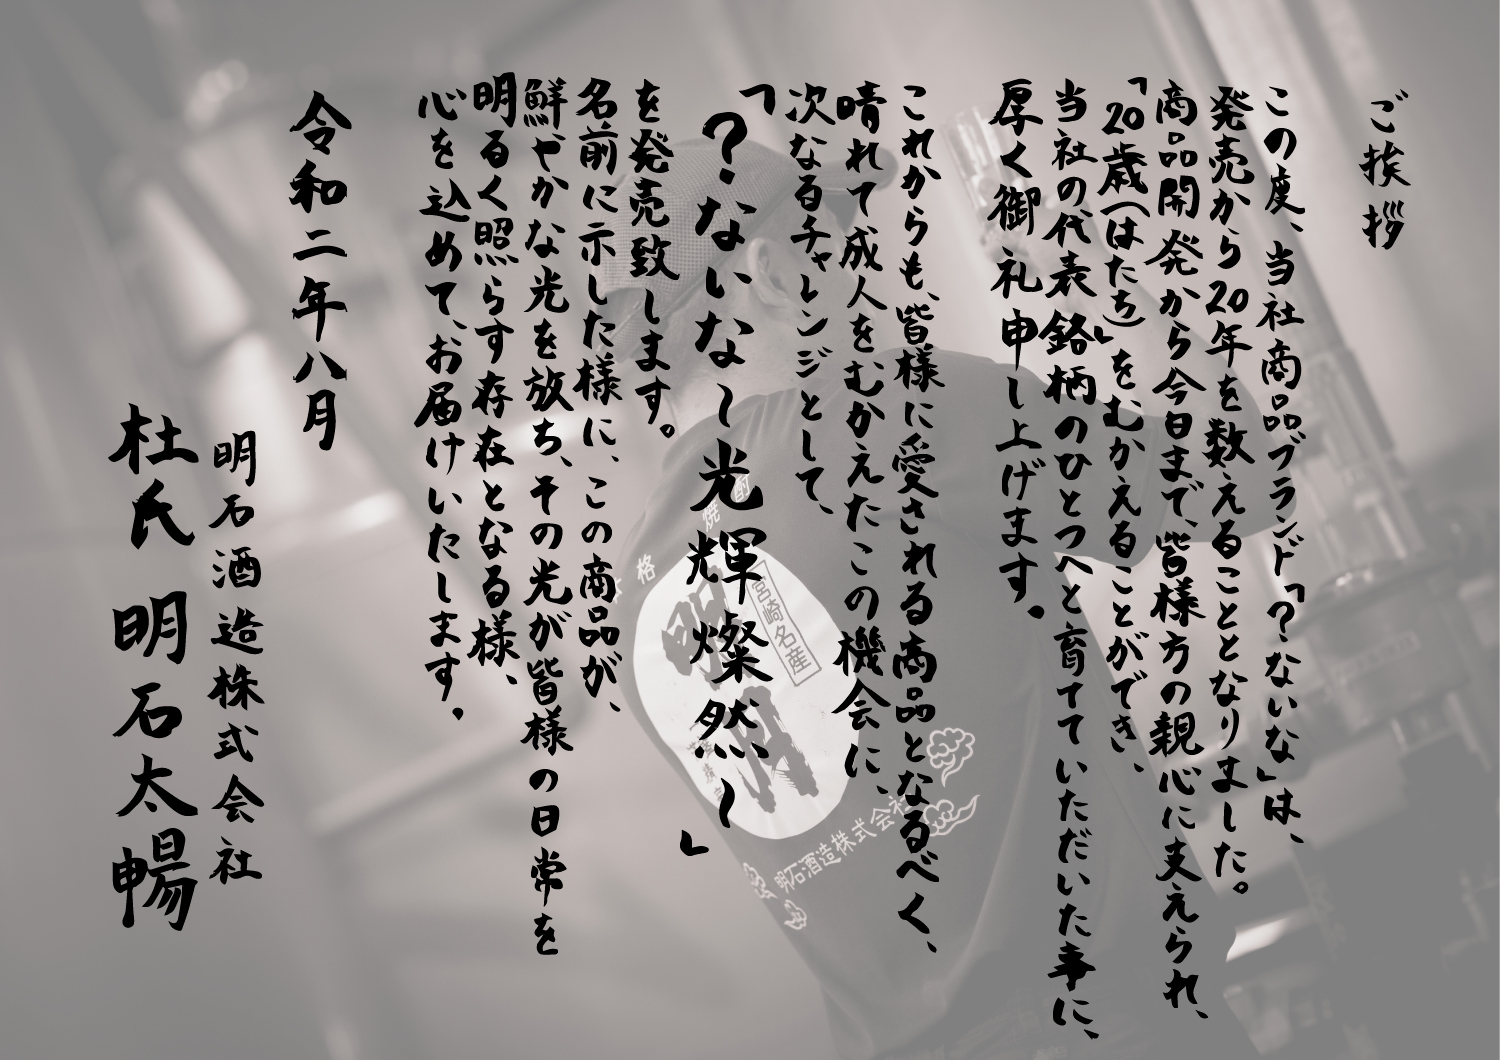 ご挨拶
この度、当社商品ブランド「？ないな」は、
発売から20年を数えることとなりました。
商品開発から今日まで、皆様方の親心に支えられ、
「20歳（はたち）」をむかえることができ、
当社の代表銘柄のひとつへと育てていただいた事に、
厚く御礼申し上げます。
これからも、皆様に愛される商品となるべく、
晴れて成人をむかえたこの機会に、
次なるチャレンジとして、
「？ないな～光輝燦然～」
を発売致します。
名前に示した様に、この商品が、
鮮やかな光を放ち、その光が皆様の日常を
明るく照らす存在となる様、
心を込めて、お届けいたします。
令和二年八月
明石酒造株式会社
杜氏 明石太暢
焼酎
格
明月
宮崎名産
明石酒造株式会社